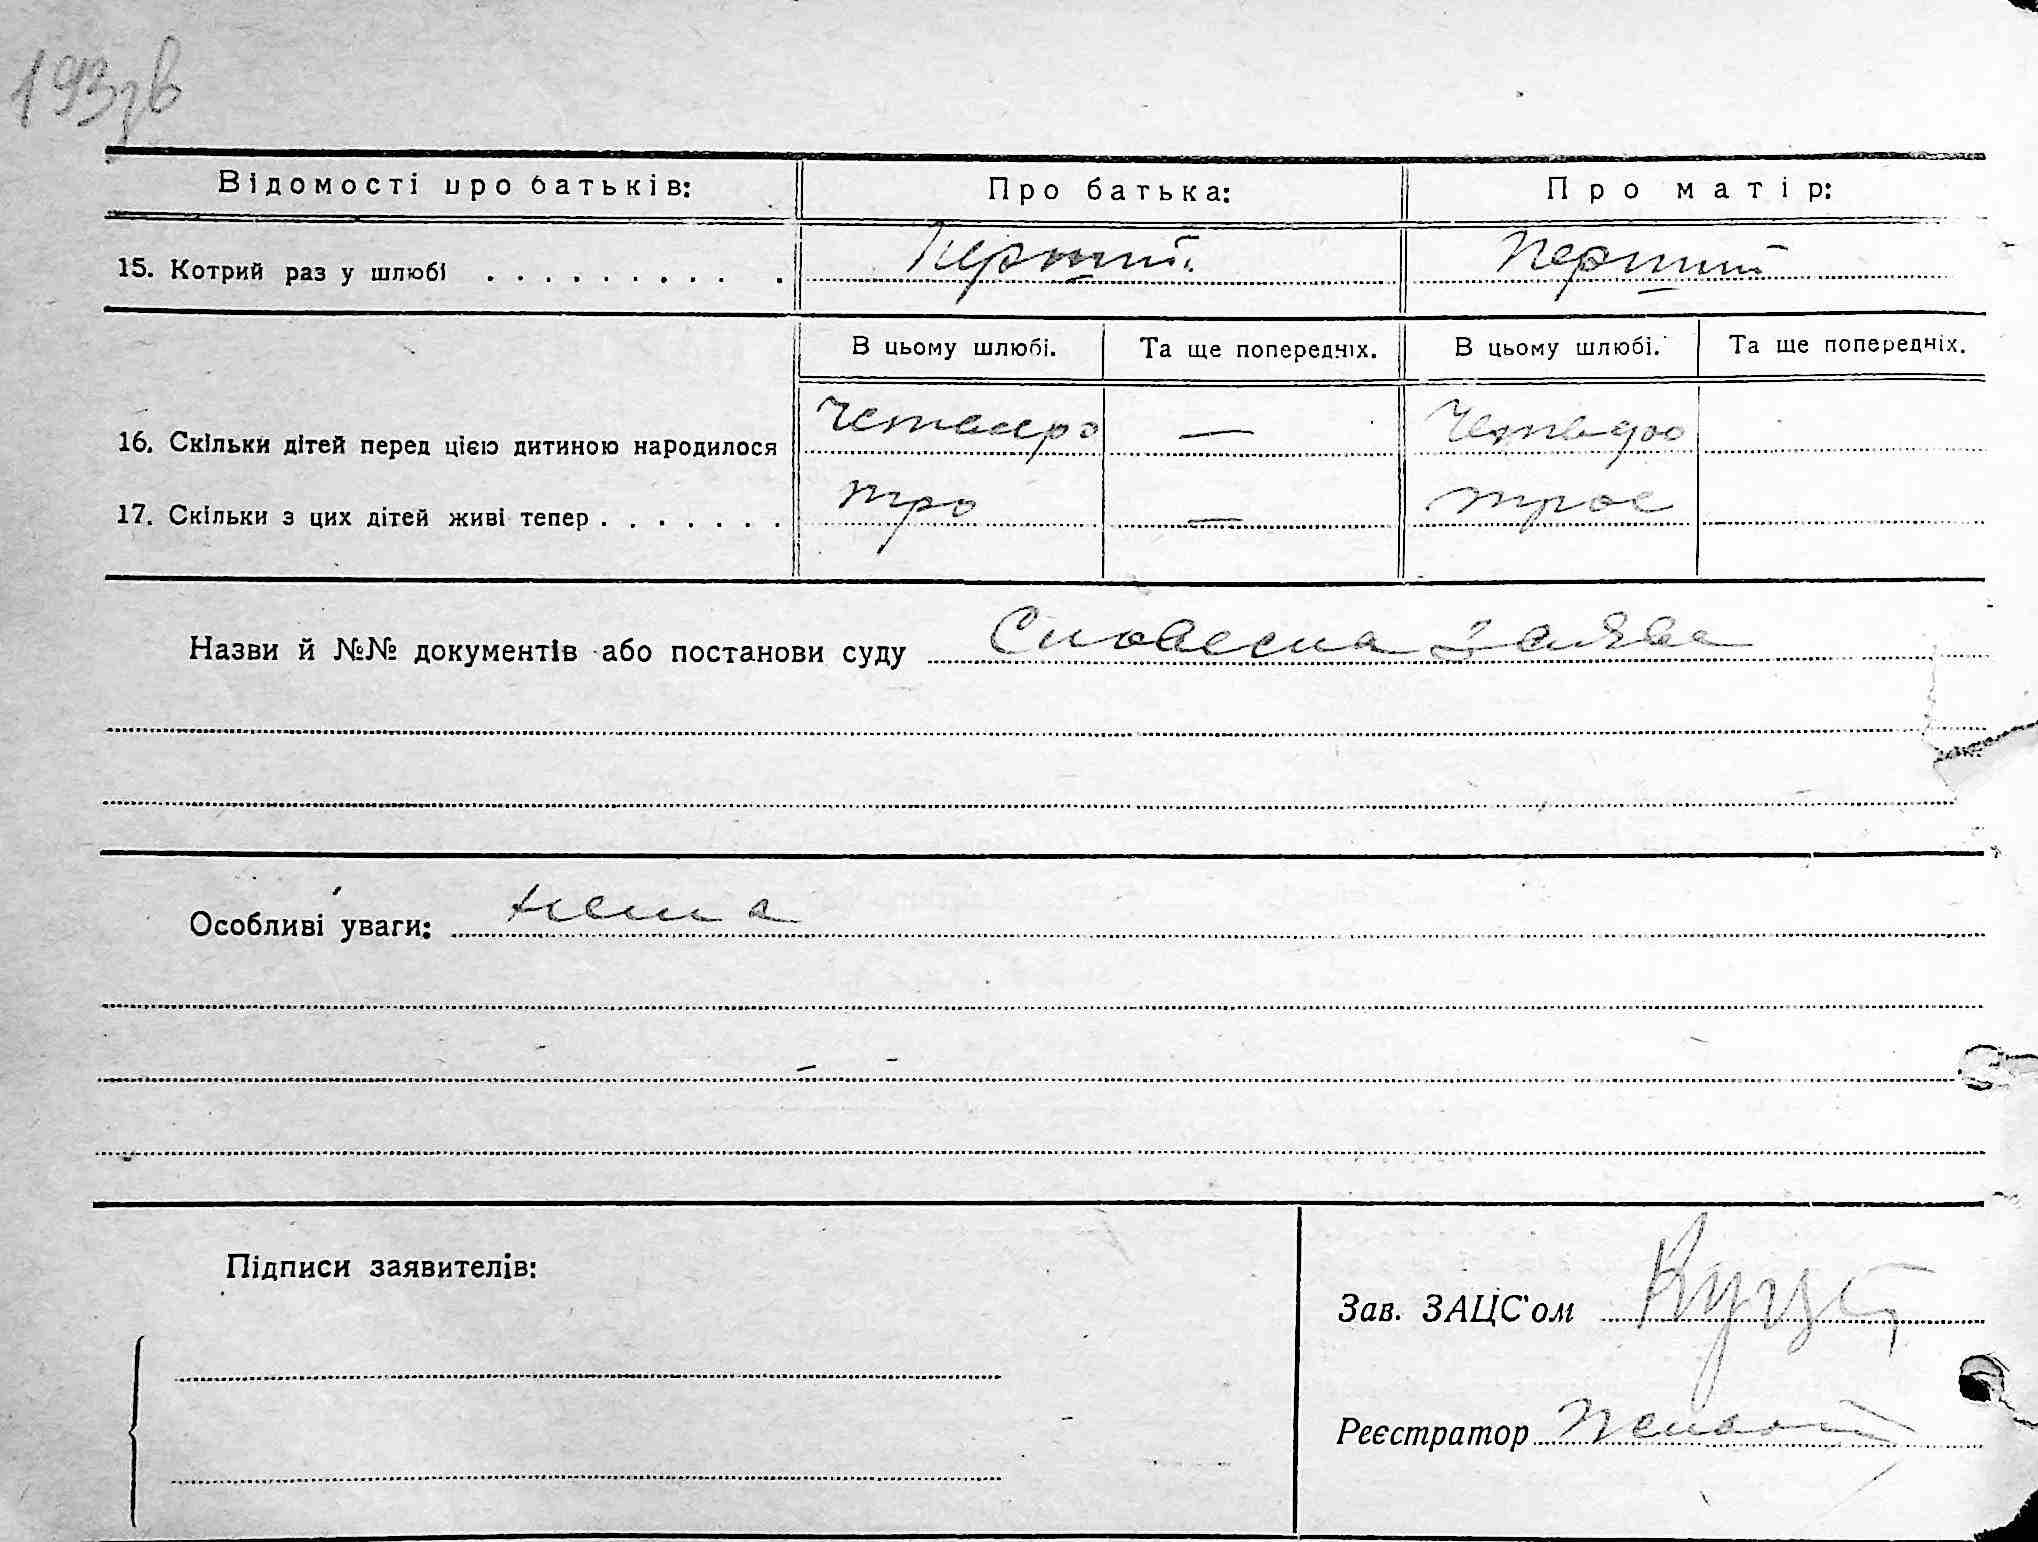 193зв
Відомості про батьків: Про батька: Про матір:
15. Котрий раз у шлюбі . . . . . . . . . . Перший. Перший
В цьому шлюбі. Та ще попередніх. В цьому шлюбі. Та ще попередніх.
16. Скільки дітей перед цією дитиною народилося Четверо — Четверо
17. Скільки з цих дітей живі тепер . . . . . . . тро — трое
Назви й №№ документів або постанови суду Словесна заява
Особливі уваги: нема
Підписи заявителів:
Зав. ЗАЦС'ом
Реєстратор